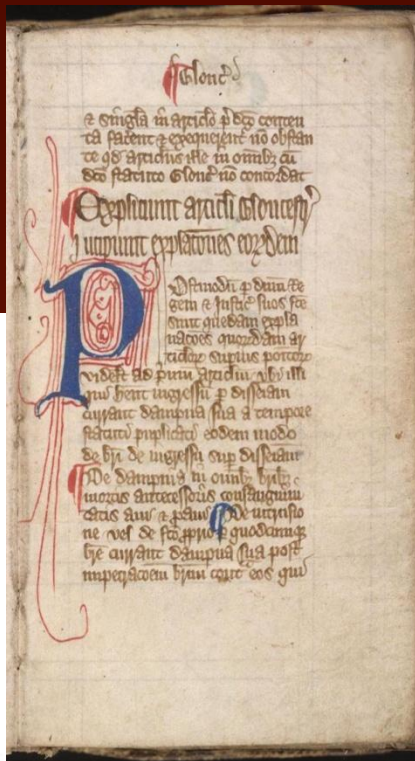 Glouc̄
& singla in articlo p̄dco conten
ta facent & exequerent᷑ nō obstan
te qd articlus ille in omībꝫ cū
dco statuto Glouc̄ nō concordat
Expliciunt articli Gloucestr̄
Incipiunt explac̄ones eorꝫdem
Postmodū p dnm Re
gem & Justic̄ suos fc̄e
sunt quedam expla
nac̄ones quorꝫdam ar
ticlorꝫ supius positorꝫ
videlt ad p̄mum articlm vbi illi
qui hent ingressū p disseiam
currant dampna sua a tempore
statuti puplicati eodem modo
de bri de ingressu sup disseiam
De dampnis in omībꝫ bribꝫ
mortis antecessoris consanguini
tatis aui & p̄aui De intrusio
ne vel de fc̄o pprio p quodcumqꝫ
bre currant dampna sua post
impetrac̄oem brium cont᷑ eos qui